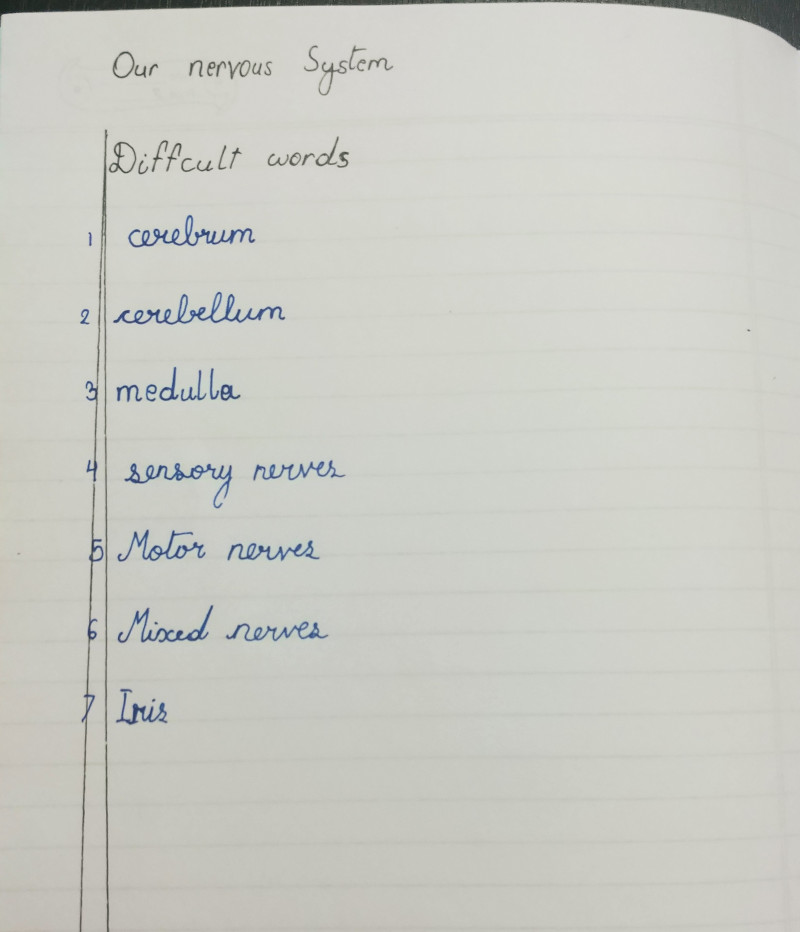 Our nervous System
Diffcult words
1 cerebrum
2 cerebellum
3 medulla
4 sensory nerves
5 Motor nerves
6 Mixed nerves
7 Iris